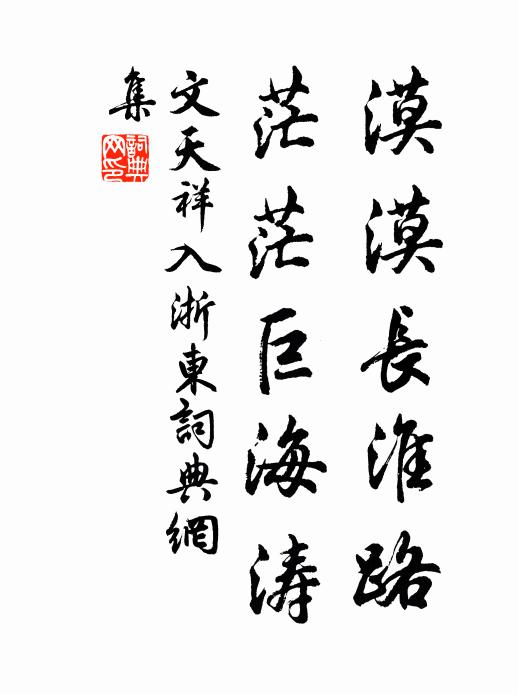 漠漠長淮路
茫茫巨海涛
文天祥入浙東詞典網
集
詞典
网印